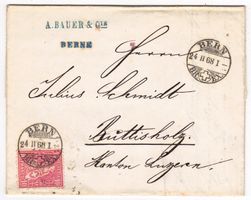 A. BAUER & CIE
BERNE
BERN
24 II 68 I
Herrn
Julius Schmidt
Buttisholz
Kanton Luzern
BERN
24 II 68 I